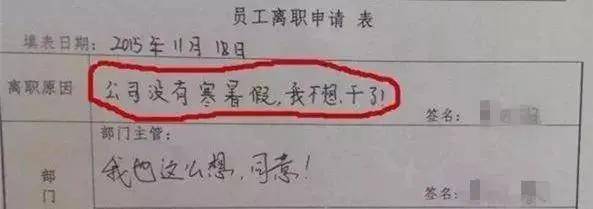 员工离职申请 表
填表日期：2015年11月18日
离职原因
公司没有寒暑假，我不想干了！
签名：
部门
部门主管：
我也这么想，同意！
签名：